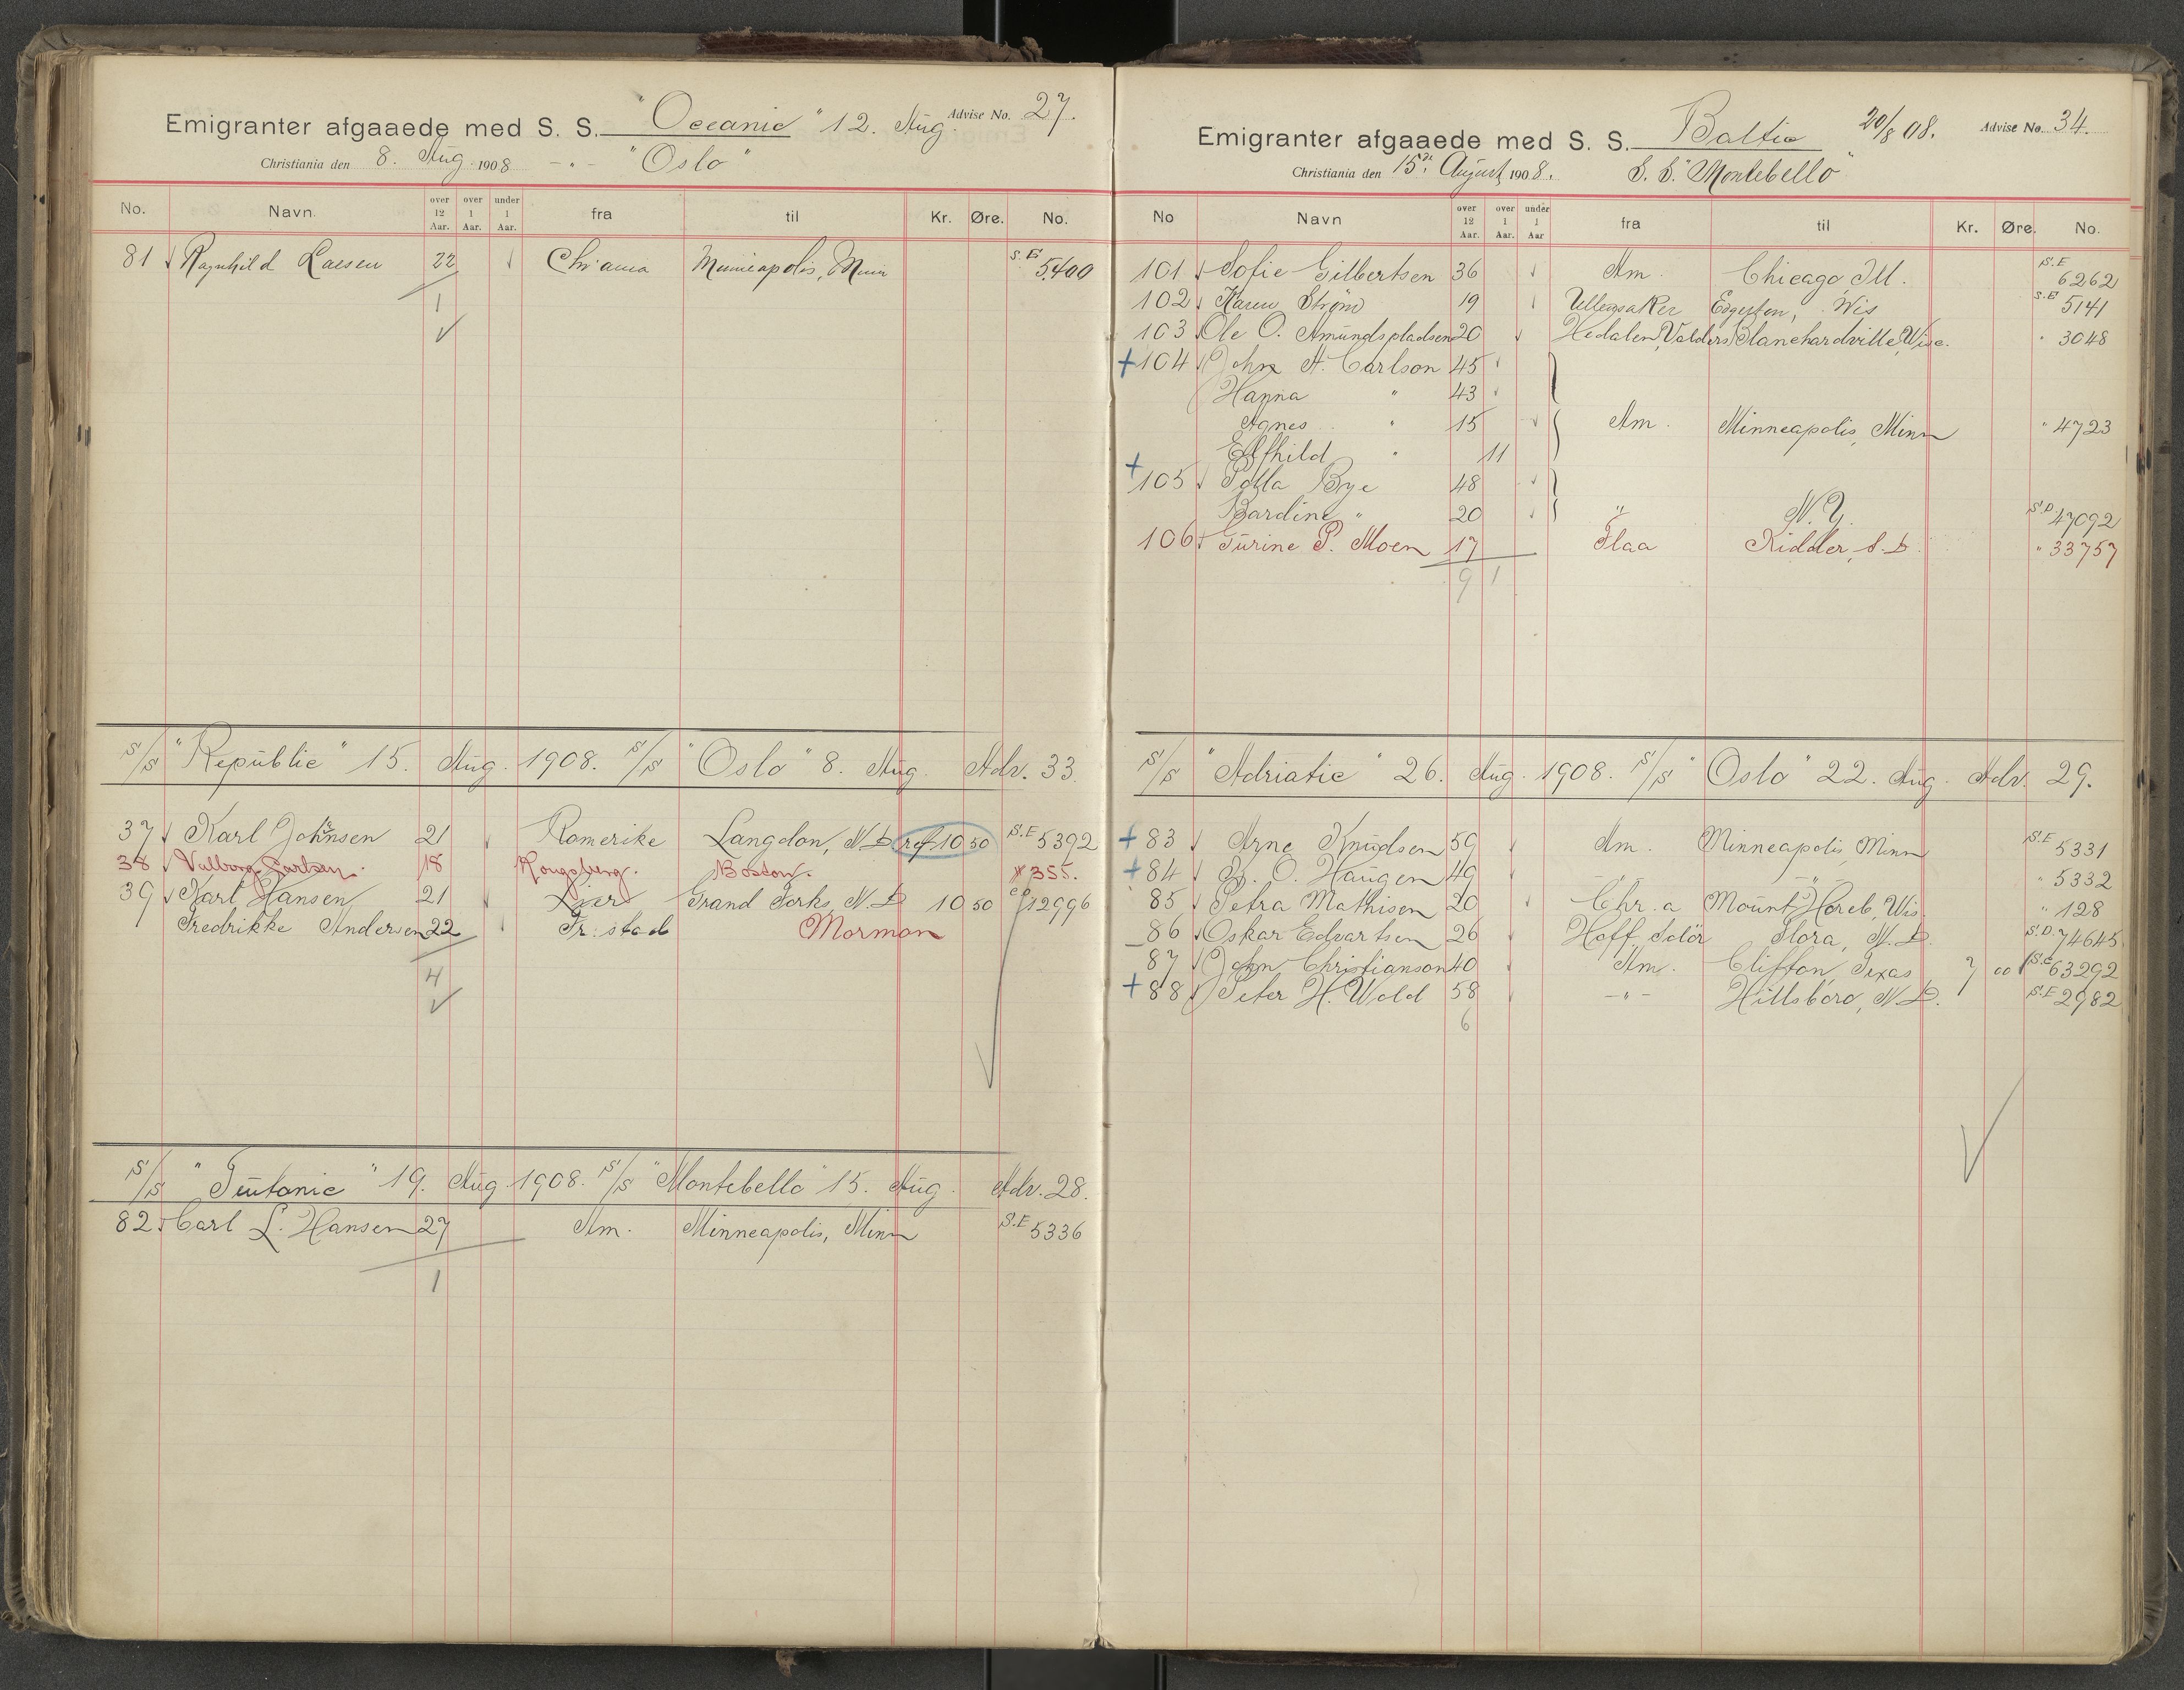 Emigranter afgaaede med S. S. "Oceanic" 12. Aug. Advise No. 27.
Christiania den 8. Aug. 1908 -"- "Oslo"
No. Navn over 12 Aar. over 1 Aar. under 1 Aar. fra til Kr. Øre. No.
81 Ragnhild Larsen 22 Chr'ania Minneapolis, Minn S.E 5400
1
S/S "Republic" 15. Aug. 1908. S/S "Oslo" 8. Aug. Adv. 33.
37 Karl Johnsen 21 Romerike Langdon, N.D. ref 10 50 S.E 5392
38 Valborg Carlsen. 18 Kongsberg. Boston. " 355.
39 Karl Hansen 21 Lier Grand Forks, N.D 10 50 12996
Fredrikke Andersen 22 Fr.stad Mormon
4
S/S "Teutonic" 19. Aug. 1908. S/S "Montebello" 15. Aug. Adv. 28.
82 Carl L. Hansen 27 Am. Minneapolis, Minn S.E 5336
1
Emigranter afgaaede med S. S. Baltic 20/8 08. Advise No. 34.
Christiania den 15. August 1908. S. S. "Montebello"
No Navn over 12 Aar. over 1 Aar. under 1 Aar fra til Kr. Øre. No.
101 Sofie Gilbertsen 36 Am. Chicago Ill. S.E 6262
102 Karen Strøm 19 Ullensaker Edgerton, Wis S.E 5141
103 Ole O. Amundspladsen 20 Hedalen, Valders Blanchardville, Wisc. " 3048
+ 104 John A. Carlson 45
Hanna " 43
Agnes " 15 Am. Minneapolis, Minn " 4723
Elfhild " 11
+ 105 Bye 48
Bardine " 20 " N.Y. S.D. 47092
106 Turine P. Moen 17 Flaa Kidder, S.D. " 33757
9 1
S/S "Adriatic" 26. Aug. 1908. S/S "Oslo" 22. Aug. Adv. 29.
+ 83 Arne Knudsen 59 Am. Minneapolis, Minn S.E 5331
+ 84 O. Haugen 49 -"- -"- " 5332
85 Petra Mathisen 20 Chr.a Mount Horeb, Wis " 128
86 Oskar Edvartsen 26 Hoff, Solør Flora, N.D. S.D. 74645
87 John Christianson 40 Am. Clifton, Texas 7 00 S.E 63292
+ 88 Peter H. Wold 58 -"- Hillsboro, N.D. S.E 2982
6